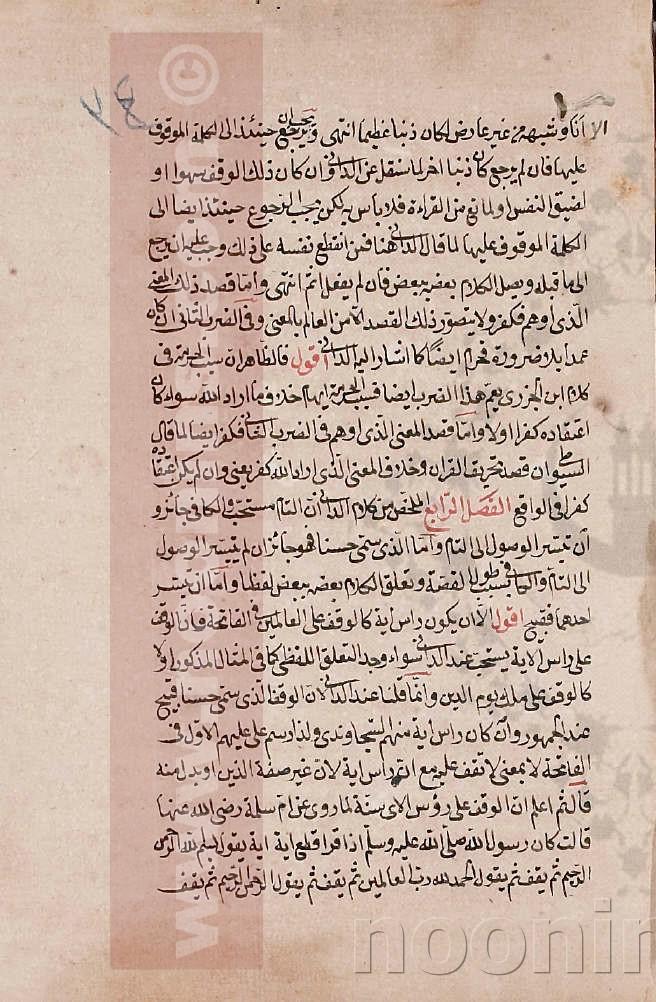 ٧٨
الا انا وشبهه من غير عارض لكان ذنبا عظيما انتهى ويجب ان يرجع حينئذ الى الكلمة الموقوف
عليها فان لم يرجع كان ذنبا اخر لما سننقل عن الداني وان كان ذلك الوقف سهوا او
لضيق النفس او لمانع من القراءة فلا باس به لكن يجب الرجوع حينئذ ايضا الى
الكلمة الموقوف عليها لما قال الداني هنا فمن انقطع نفسه على ذلك وجب عليه ان يرجع
الى ما قبله ويصل الكلام بعضه ببعض فان لم يفعل اثم انتهى واما قصد ذلك المعنى
الذى اوهم فكفر ولا يتصور ذلك القصد الا من العالم بالمعنى وفى الضرب الثانى ان كان
عمدا بلا ضرورة فحرم ايضا كما اشار اليه الداني اقول فالظاهر ان سبب الحرمة فى
كلام ابن الجزرى يعم هذا الضرب ايضا فسبب الحرمة ايهام خلاف ما اراد الله سواء كان
اعتقاده كفرا او لا واما قصد المعنى الذى اوهم فى الضرب الثانى فكفر ايضا لما قال
السيوطى ان قصد تحريف القران وخلاف المعنى الذى اراد الله كفر يعنى وان لم يكن اعتقاده
كفرا فى الواقع الفصل الرابع الملخص من كلام الداني ان التام مستحب والكافى جائز و
ان تيسر الوصول الى التام واما الذى سمى حسنا فهو جائز ان لم يتيسر الوصول
الى التام والكافى بسبب طول القصة وتعلق الكلام بعضه ببعض لفظا واما ان تيسر
احدهما فقبيح اقول الا ان يكون راس اية كالوقف على العالمين فى الفاتحة فان الوقف
على راس الاية يستحب عند الداني سواء وجد التعلق اللفظى كما فى المثال المذكور او لا
كالوقف على ملك يوم الدين وانما قلنا عند الداني لان الوقف الذى سمى حسنا قبيح
عند الجمهور وان كان راس اية منهم السجاوندى ولذا رسم على عليهم الاول فى
الفاتحة لا بمعنى لا تقف عليه مع انه راس اية لان غير صفة الذين او بدل منه
قال ثم اعلم ان الوقف على رؤس الاى سنة لما روى عن ام سلمة رضى الله عنها
قالت كان رسول الله صلى الله عليه وسلم اذا قرا قطع اية اية يقول بسم الله الرحمن
الرحيم ثم يقف ثم يقول الحمد لله رب العالمين ثم يقف ثم يقول الرحمن الرحيم ثم يقف
©
www.
noonin